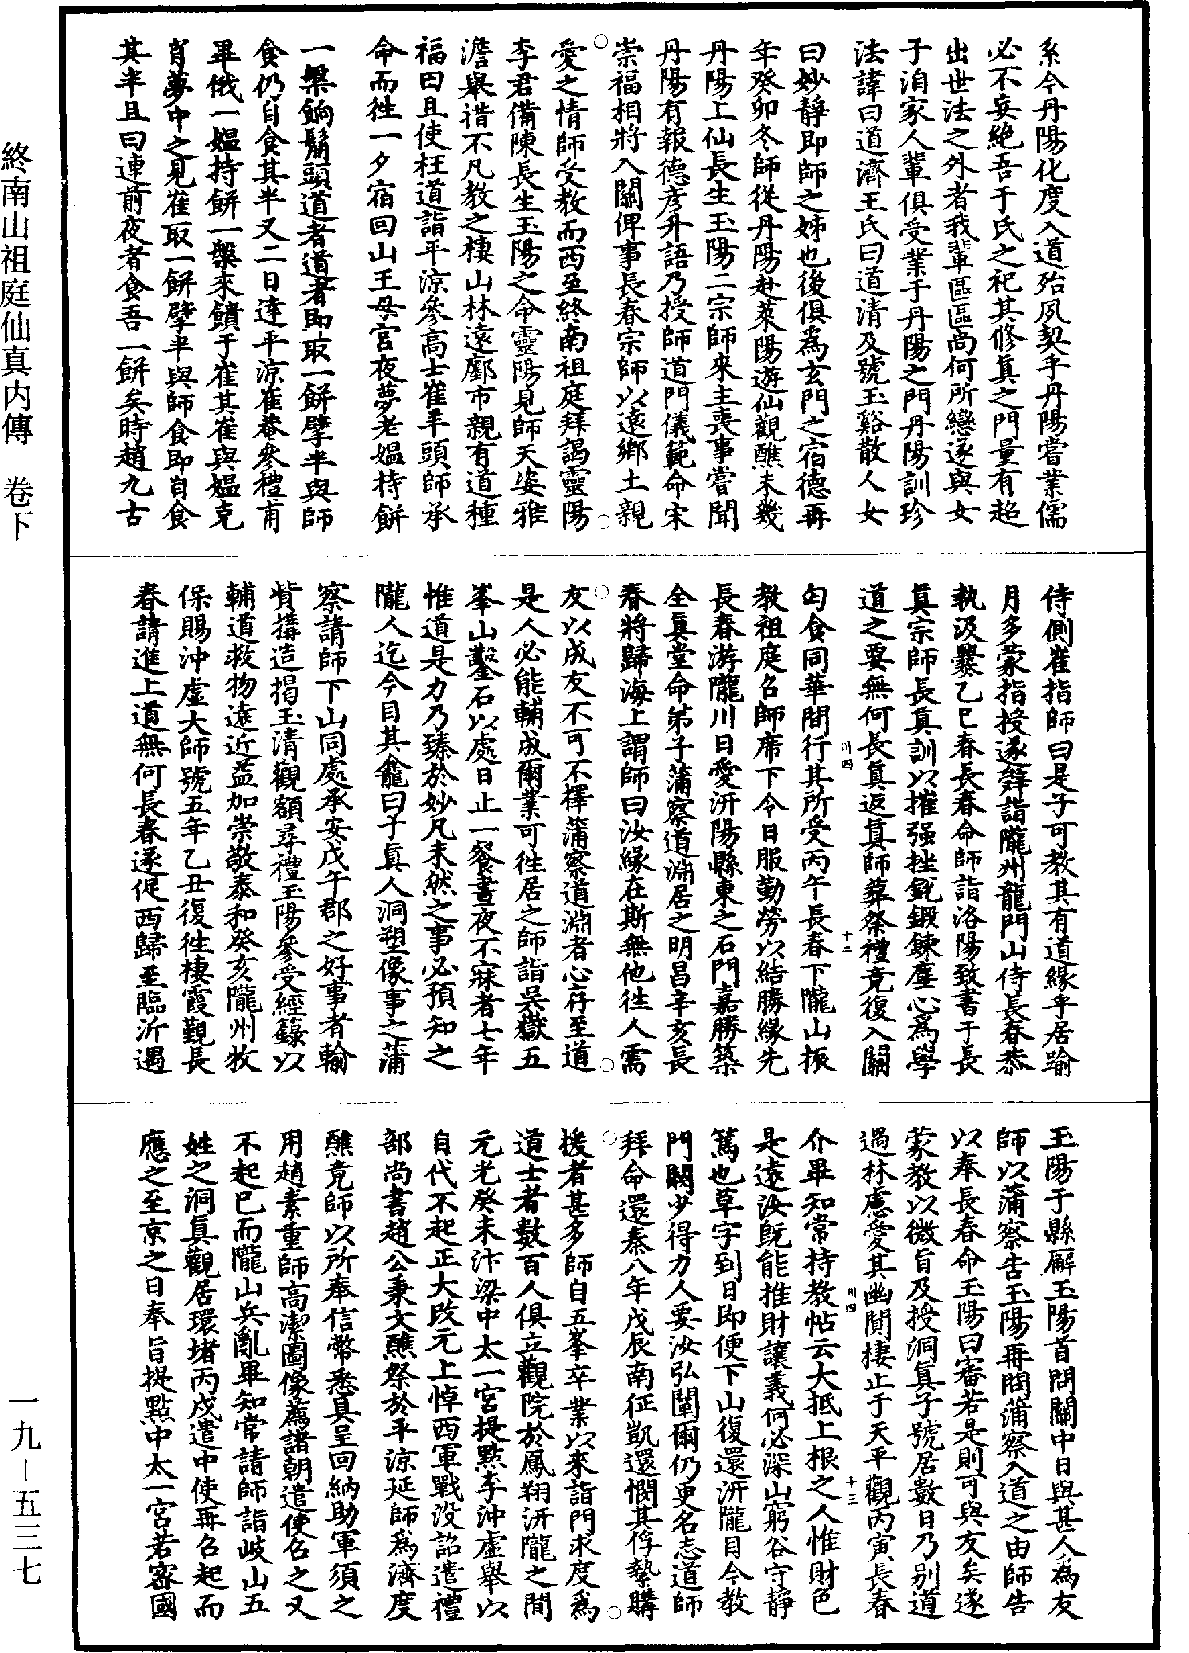 終南山祖庭仙真内傳　卷下
一九—五三七
系今丹陽化度入道殆夙契乎丹陽嘗業儒
必不妄絶吾于氏之祀其修真之門量有超
出世法之外者我輩區區尚何所戀遂與女
子洎家人輩俱受業于丹陽之門丹陽訓珍
法諱曰道濟王氏曰道清及號玉谿散人女
曰妙靜即師之姊也後俱為玄門之宿德再
年癸卯冬師從丹陽赴萊陽遊仙觀醮未幾
丹陽上仙長生玉陽二宗師來主喪事嘗聞
丹陽有報德彥升語乃授師道門儀範命宋
崇福相將入關俾事長春宗師以遠鄉土親
愛之情師受教而西至終南祖庭拜謁靈陽
李君備陳長生玉陽之命靈陽見師天姿雅
澹舉措不凡教之棲山林遠鄽市親有道種
福田且使枉道詣平涼參高士崔羊頭師承
命而徃一夕宿回山王母宮夜夢老媼持餅
一槃餉鬅頭道者道者即取一餅擘半與師
食仍自食其半又二日達平涼崔菴參禮甫
畢俄一媼持餅一槃來饋于崔其崔與媼克
肖夢中之見崔取一餅擘半與師食即自食
其半且曰連前夜者食吾一餅矣時趙九古
侍側崔指師曰是子可教其有道緣乎居踰
月多蒙指授遂辭詣隴州龍門山侍長春恭
執汲爨乙巳春長春命師詣洛陽致書于長
真宗師長真訓以摧强挫銳鍛鍊塵心為學
道之要無何長真返真師葬祭禮竟復入關
匃食同華間行其所受丙午長春下隴山振
教祖庭召師席下令日服勤勞以結勝緣先
長春游隴川日愛汧陽縣東之石門嘉勝築
全真堂命弟子蒲察道淵居之明昌辛亥長
春將歸海上謂師曰汝緣在斯無他徃人需
友以成友不可不擇蒲察道淵者心存至道
是人必能輔成爾業可徃居之師詣吳嶽五
峯山鑿石以處日止一餐晝夜不寐者七年
惟道是力乃臻於妙凡未然之事必預知之
隴人迄今目其龕曰于真人洞塑像事之蒲
察請師下山同處承安戊午郡之好事者輸
貲構造揭玉清觀額尋禮玉陽參受經籙以
輔道救物遠近益加崇敬泰和癸亥隴州牧
保賜沖虛大師號五年乙丑復徃棲霞覲長
春請進上道無何長春遂促西歸至臨沂遇
玉陽于縣廨玉陽首問關中日與甚人為友
師以蒲察告玉陽再問蒲察入道之由師告
以奉長春命玉陽曰審若是則可與友矣遂
蒙教以微旨及授洞真子號居數日乃別道
過林慮愛其幽閴棲止于天平觀丙寅長春
介畢知常持教帖云大抵上根之人惟財色
是遠汝既能推財讓義何必深山窮谷守靜
篤也草字到日即便下山復還汧隴目今教
門闕少得力人要汝弘闡爾仍更名志道師
拜命還秦八年戊辰南征凱還憫其俘縶購
援者甚多師自五峯卒業以來詣門求度為
道士者數百人俱立觀院於鳳翔汧隴之間
元光癸未汴梁中太一宮提點李沖虛舉以
自代不起正大改元上悼西軍戰没詔遣禮
部尚書趙公秉文醮祭於平涼延師為濟度
醮竟師以所奉信幣悉真呈回納助軍須之
用趙素重師高潔圖像薦諸朝遣使召之又
不起已而隴山兵亂畢知常請師詣岐山五
姓之洞真觀居環堵丙戌遣中使再召起而
應之至京之日奉旨提點中太一宮若審國